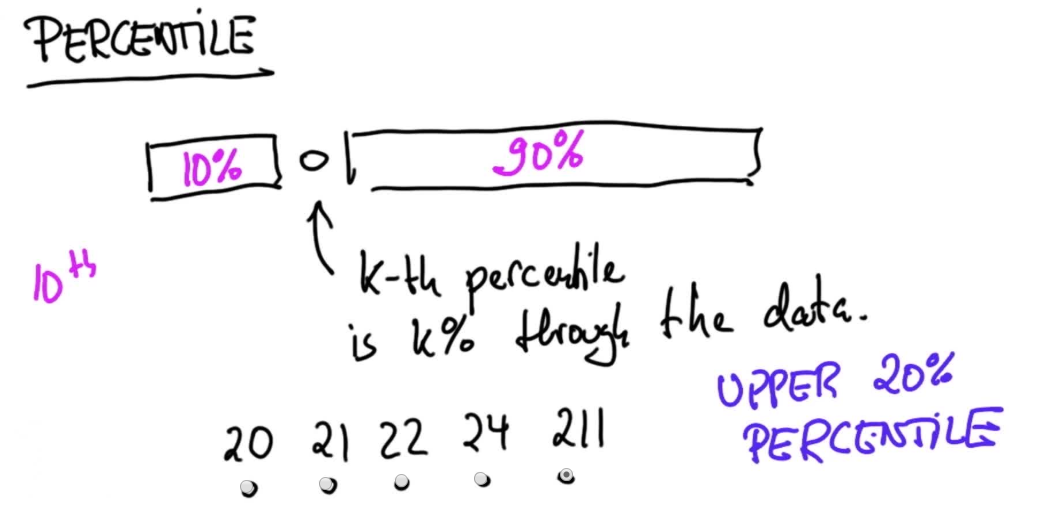 PERCENTILE
10% 90%
10th
k-th percentile
is k% through the data.
UPPER 20%
PERCENTILE
20 21 22 24 211